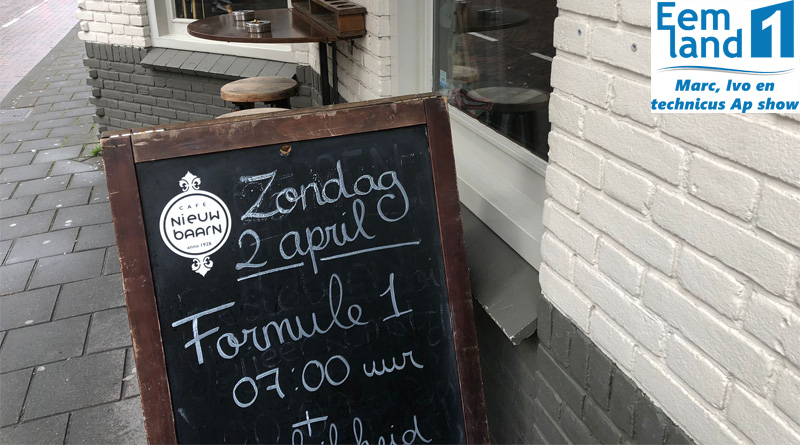 Eem
land 1
Marc, Ivo en
technicus Ap show
CAFÉ
NiEUW
bAARN
anno 1928
Zondag
2 april
Formule 1
07:00 uur
+